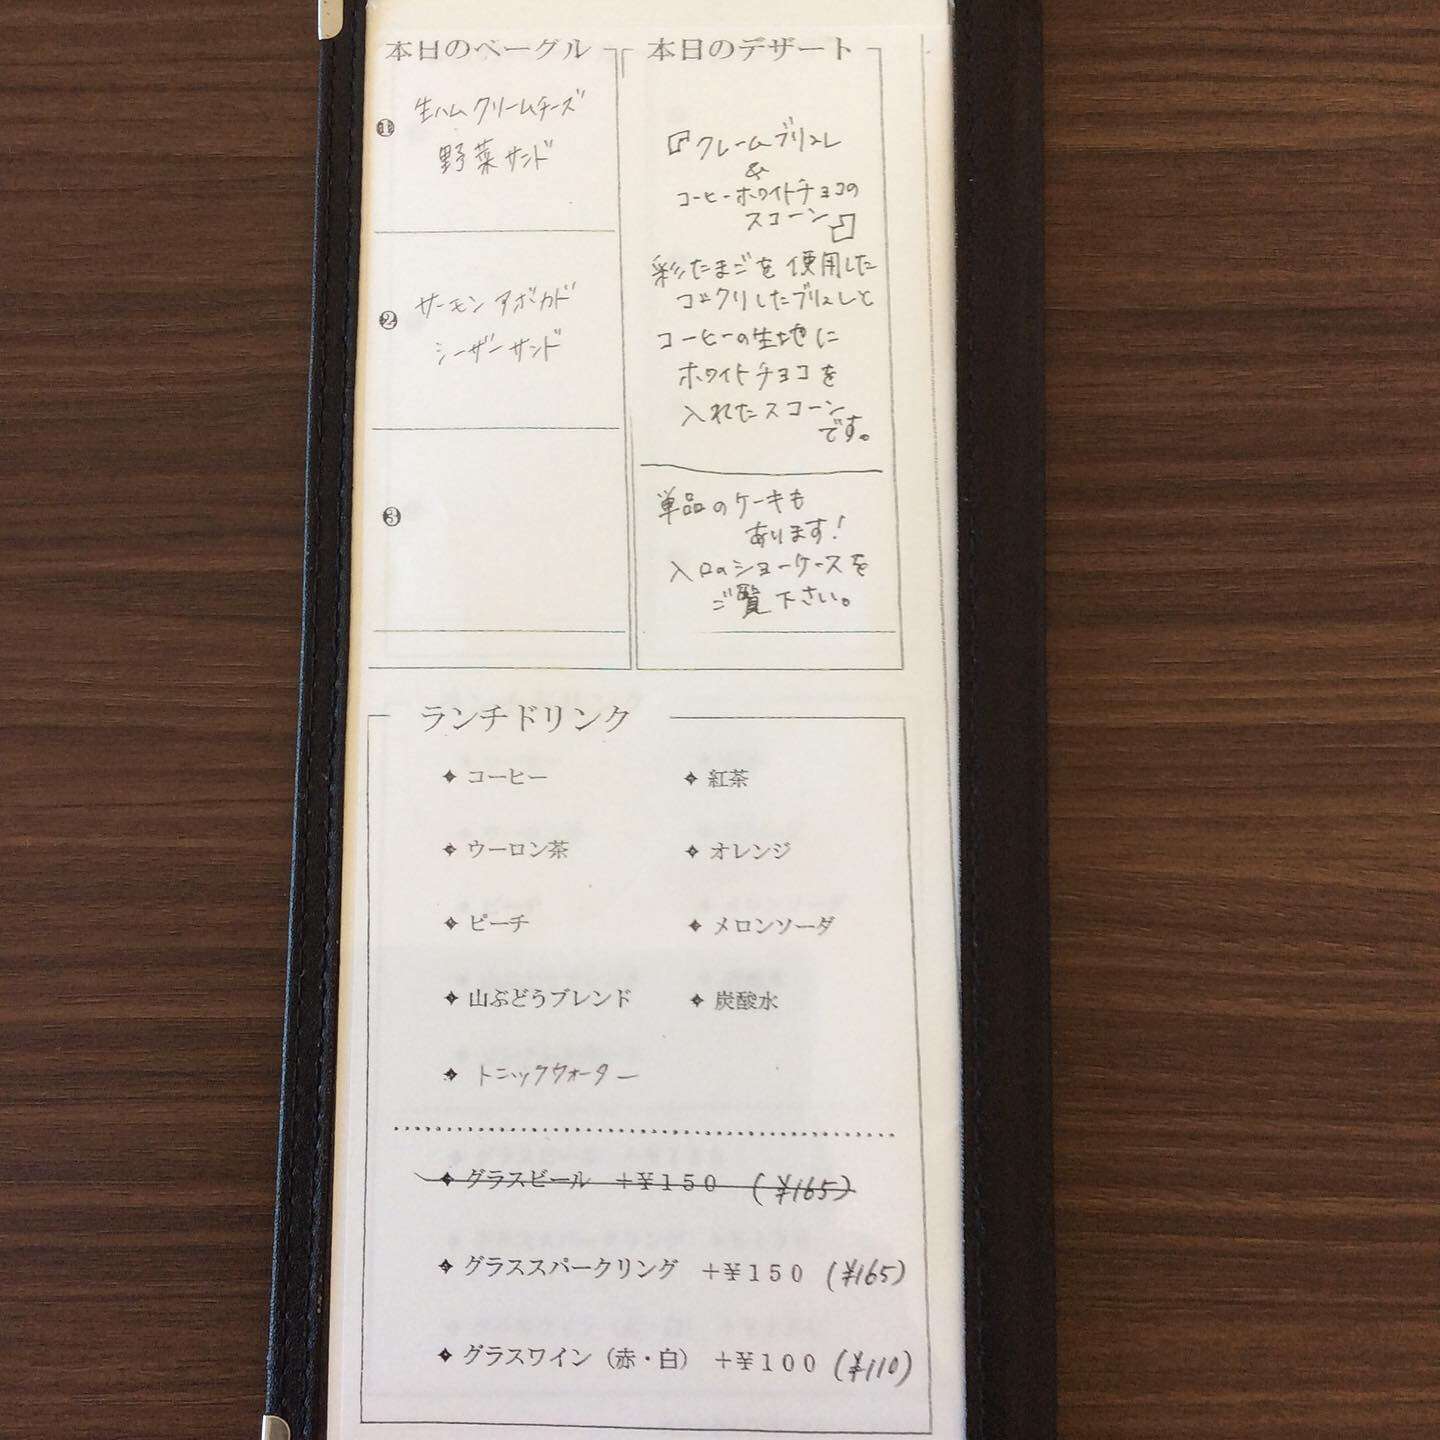 本日のベーグル
❶
生ハムクリームチーズ
野菜サンド
❷
サーモンアボカド
シーザーサンド
❸
本日のデザート
『クレームブリュレ
&
コーヒーホワイトチョコの
スコーン』
彩たまごを使用した
コックリしたブリュレと
コーヒーの生地に
ホワイトチョコを
入れたスコーン
です。
単品のケーキも
あります!
入口のショーケースを
ご覧下さい。
ランチドリンク
コーヒー 紅茶
ウーロン茶 オレンジ
ピーチ メロンソーダ
山ぶどうブレンド 炭酸水
トニックウォーター
グラスビール +¥150 (¥165)
グラススパークリング +¥150 (¥165)
グラスワイン(赤・白) +¥100 (¥110)